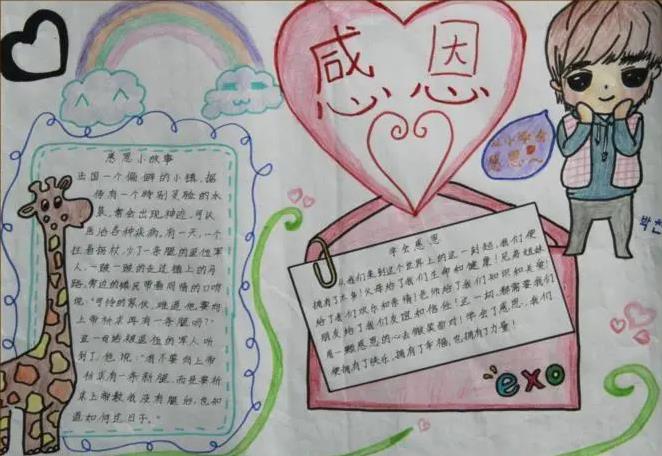 感恩
感恩小故事
法国一个偏僻的小镇,据
传有一个特别灵验的水
泉,常会出现神迹,可以
医治各种疾病。有一天,一个
拄着拐杖,少了一条腿的退伍军
人,一跛一跛的走过镇上的马
路,旁边的镇民带着同情的口吻
说:“可怜的家伙,难道他要向
上帝祈求再有一条腿吗?”
这一句话被退伍的军人听
到了,他说:“我不要向上帝
祈求有一条新腿,而是要祈
求上帝教我没有腿后,也知
道如何过日子。”
学会感恩
从我们来到这个世界上的这一刻起,我们便
拥有了太多!父母给了我们生命和健康!兄弟姐妹
给了我们欢乐和亲情!老师给了我们知识和关爱!
朋友给了我们友谊和信任!这一切,都需要我们
用一颗感恩的心去微笑面对!学会了感恩,我们
便拥有了快乐,拥有了幸福,也拥有了力量!
从小学会
感恩~
exo